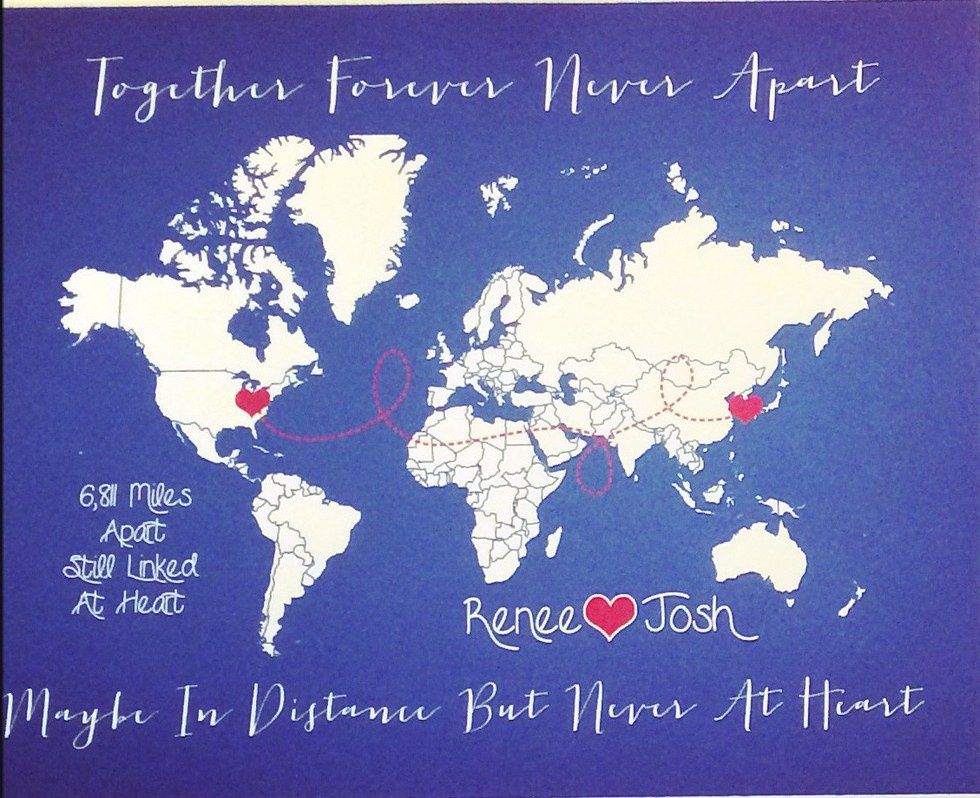 Together Forever Never Apart
6,811 Miles
Apart
Still Linked
At Heart
Renee Josh
Maybe In Distance But Never At Heart